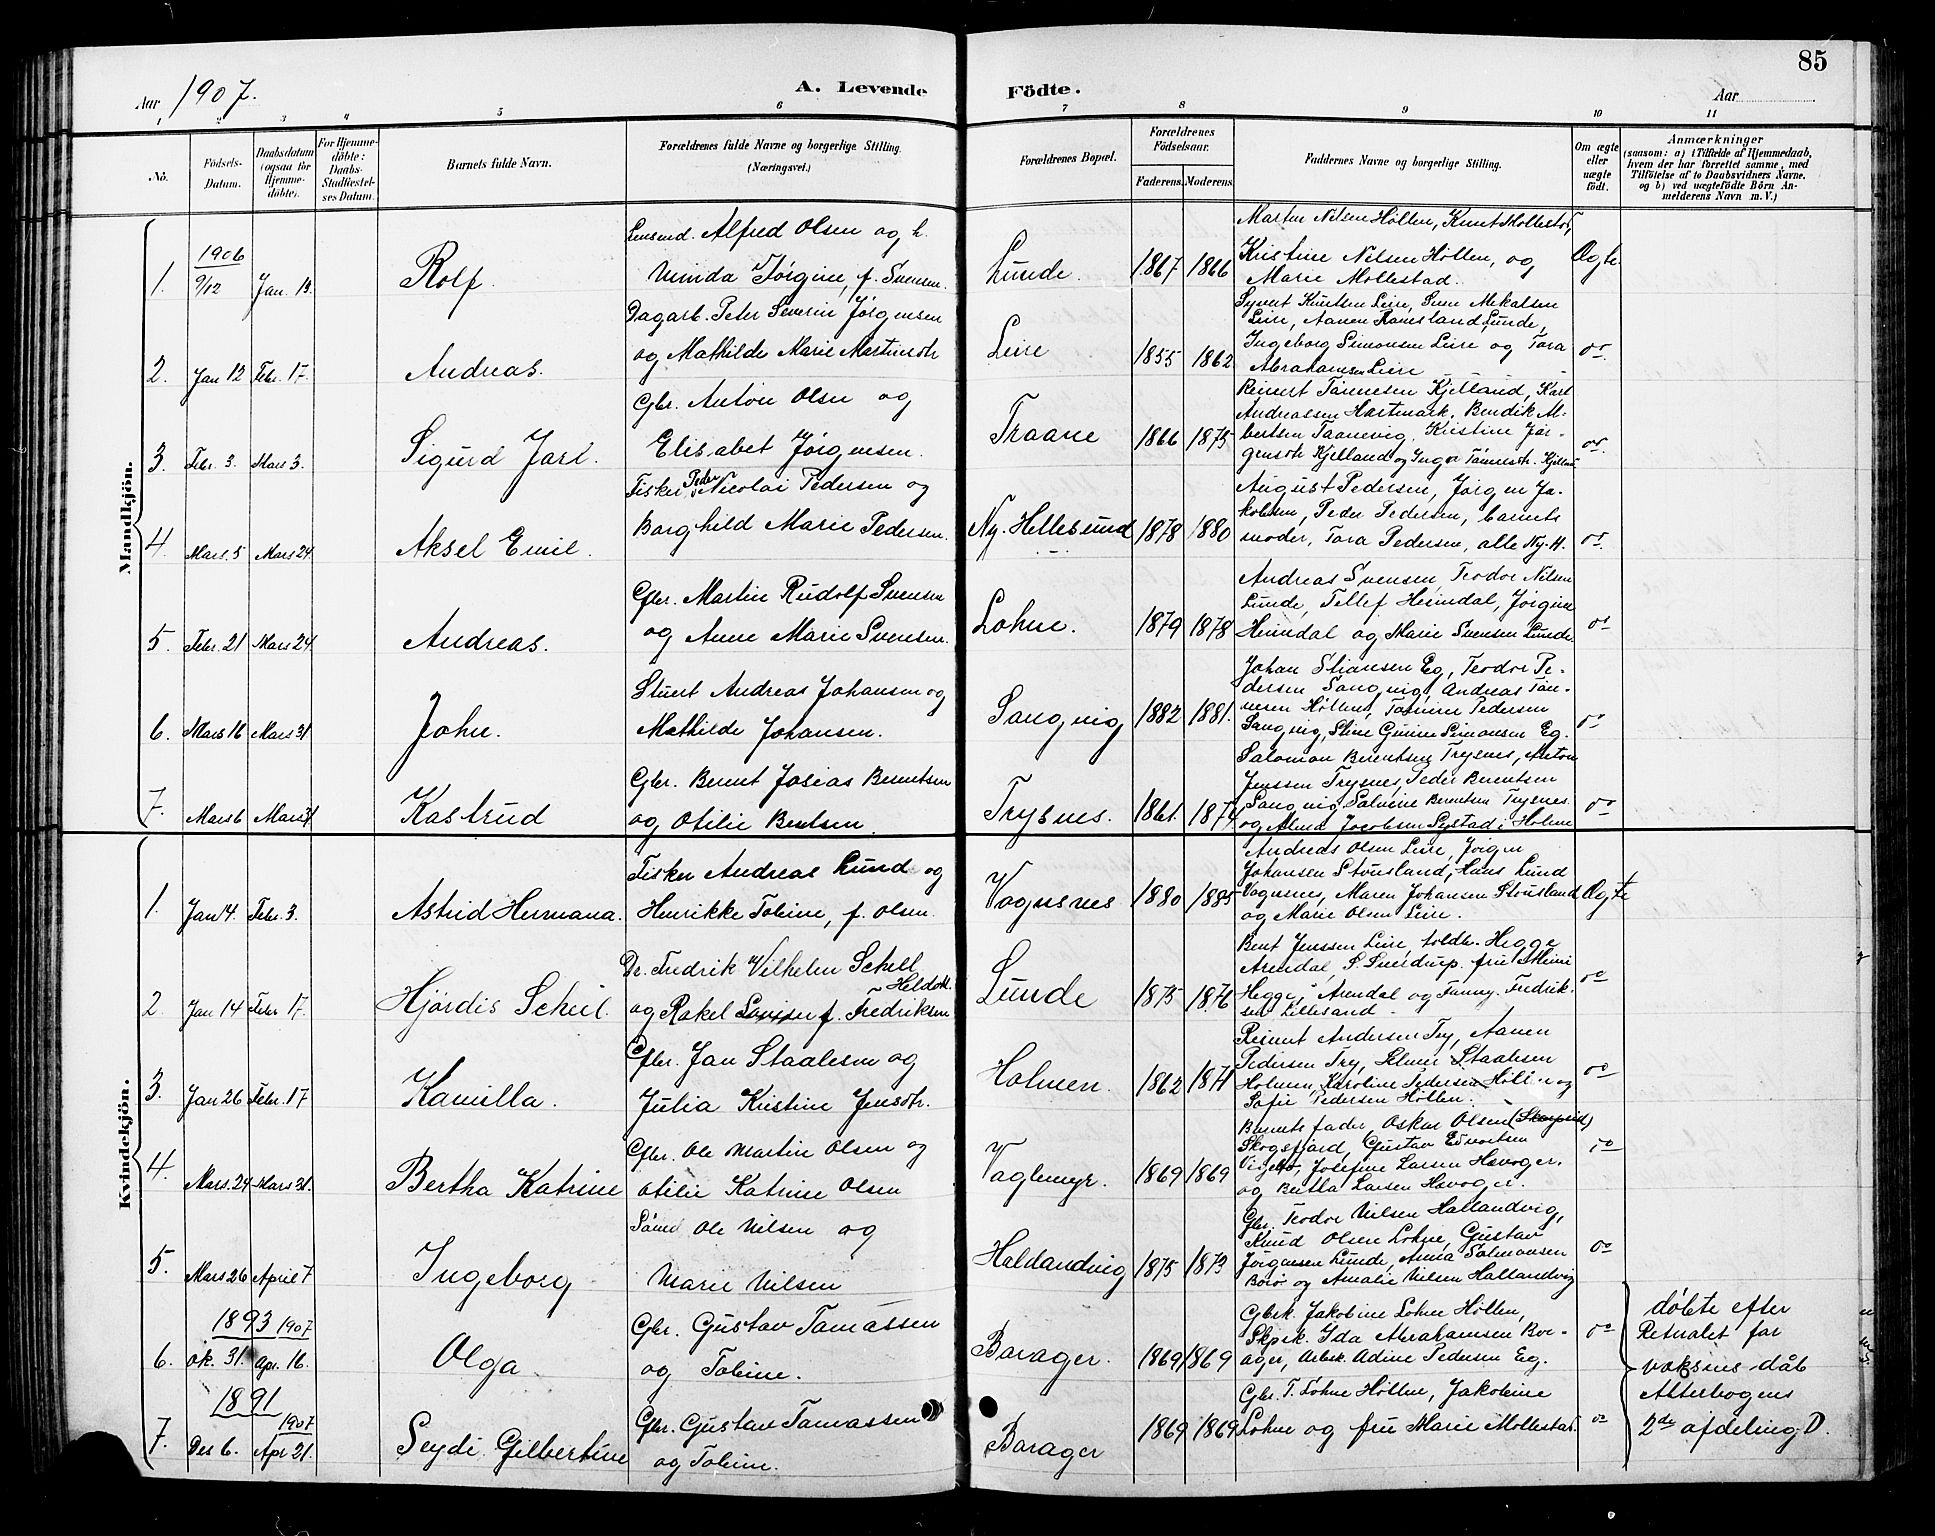 85
Aar 1907.
A. Levende Födte.
Aar
1 2 3 4 5 6 7 8 9 10 11
No.
Födsels-Datum.
Daabsdatum (ogsaa for Hjemmedöbte).
For Hjemmedöbte: Daabs-Stadfæstelses Datum.
Barnets fulde Navn.
Forældrenes fulde Navne og borgerlige Stilling. (Næringsvei.)
Forældrenes Bopæl.
Forældrenes Födselsaar.
Faderens. Moderens.
Faddernes Navne og borgerlige Stilling.
Om ægte eller uægte födt.
Anmærkninger
(saasom: a) i Tilfælde af Hjemmedaab,
hvem der har forrettet samme, med
Tilföielse af to Daabsvidners Navne.
og b) ved uægtefödte Börn An-
melderens Navn m.V.)
Mandkjön.
1. 1906 9/12 Jan. 13. Rolf.
Alfred Olsen og h.
Minda Jörgine, f. Svensen.
Lunde. 1867 1866
Martin Nilsen Höllen, Knut Mollestad,
Kristine Nilsen Höllen, og
Marie Mollestad.
Ægte
2. Jan 12 Febr. 17. Andreas.
Dagarb. Peter Severin Jörgensen
og Mathilde Marie Martinsdtr
Leire 1855 1862
Syvert Knutsen Leire, Sven Mekalsen
Leire, Aanen Ramsland Lunde,
Ingeborg Simonsen Leire og Tora
Abrahamsen Leire
do.
3. Febr. 3. Mars 3. Sigurd Jarl.
Gbr. Anton Olsen og
Elisabet Jörgensen.
Traane 1866 1875
Reinert Tönnesen Kjelland, Karl
Andreassen Hartmark, Bendik Al-
bertsen Taanevig. Kristine Jör-
gensdtr Kjelland og Inger Tönnesdtr. Kjelland
do.
4. Mars. 5 Mars 24 Aksel Emil.
Fisker Peder Nicolai Pedersen og
Borghild Marie Pedersen.
Ny-Hellesund 1878 1880
August Pedersen, Jörgen Ja-
kobsen, Peder Pedersen, barnets
moder, Tora Pedersen, alle Ny-H.
do.
5. Febr. 21 Mars 24 Andreas.
Gbr. Martin Rudolf Svensen
og Anne Marie Svensen.
Lohne. 1879 1878
Andreas Svensen, Teodor Nilsen
Lunde, Tellef Heimdal, Jörgine
Heimdal og Marie Svensen Lunde.
do
6. Mars 16 Mars 31 John.
Stuert Andreas Johansen og
Mathilde Johansen.
Sangvig 1882 1881.
Johan Stiansen Eg, Teodor Pe-
dersen Sangvig, Andreas Tön-
nesen Höllen, Tomine Pedersen
Sangvig, Stine Gurine Simonsen Eg.
do
7. Mars 6 Mars 31 Kastrud
Gbr. Bernt Josias Berentsen
og Otilie Bentsen.
Trysnes. 1861. 1874
Salomon Berentsen Trysnes, Anton
Jenssen Trysnes, Peder Berentsen
Sangvig, Salvine Berentsen Trysnes.
og Alma Jacobsen Systad i Holme
do
Kvindekjön.
1. Jan 4. Febr. 3. Astrid Hermana.
Fisker Andreas Lund og
Henrikke Tobine, f. Olsen.
Vagnsnes 1880 1885
Andreas Olsen Leire, Jörgen
Johansen Stousland, Hans Lund
Vognsnes, Maren Johansen Stousland
og Marie Olsen Leire.
Ægte
2. Jan 14 Febr 17. Hjördis Scheel.
Dr. Fredrik Vilhelm Scheel
og Rakel f. Fredriksen
Lunde 1875 1876
Bent Jenssen Leire, toldb. Hegge
Arendal, S. Sverdrup. fru
Hegge, Arendal og Fanny Fredrik-
sen Lillesand.
do
3. Jan 26 Febr. 17 Kamilla.
Gbr. Jan Staalesen og
Julia Kristine Jensdtr.
Holmen. 1862 1871
Reinert Andersen Try, Aanen
Pedersen Try, Elmer Staalesen
Holmen, Karoline Pedersen Höllen og
Sofie Pedersen Höllen.
do
4. Mars. 24 Mars 31. Bertha Katrine
Gbr. Ole Martin Olsen og
Otilie Katrine Olsen
Vaglemyr. 1869 1869
Barnets fader, Oskar Olsen
Skogsfjord, Gustav Edvartsen
Vigeltö, Josefine Larsen Havoger.
og Berttha Larsen Havoger.
do
5. Mars 26 April 7 Ingeborg
Sömd Ole Nilsen og
Marie Nilsen
Haldandvig 1875 1873
Gbr. Teodor Nilsen Hallandvig,
Knud Olsen Lohne, Gustav
Jörgensen Lunde, Anna Salmonsen
Borö og Amalie Nilsen Hallandvig
do
6. 1893 ok. 31. 1907 Apr. 16. Olga
Gbr. Gustav Tamassen
og Tobine.
Borager. 1869 1869
Gbsk. Jakobine Lohne Höllen,
Skpsk. Ida Abrahamsen Bor-
ager, Arbsk. Adine Pedersen Eg.
do
7. 1891 Des 6. 1907 Apr 21. Seydi Gilbertine
Gbr. Gustav Tamassen
og Tobine.
Borager 1869 1869
Gbr. T. Lohne Höllen, Jakobine
Lohne og fru Marie Mollestad.
do
döbte efter
Ritualet for
voksnes dåb
Alterbogens
2den afdeling D.